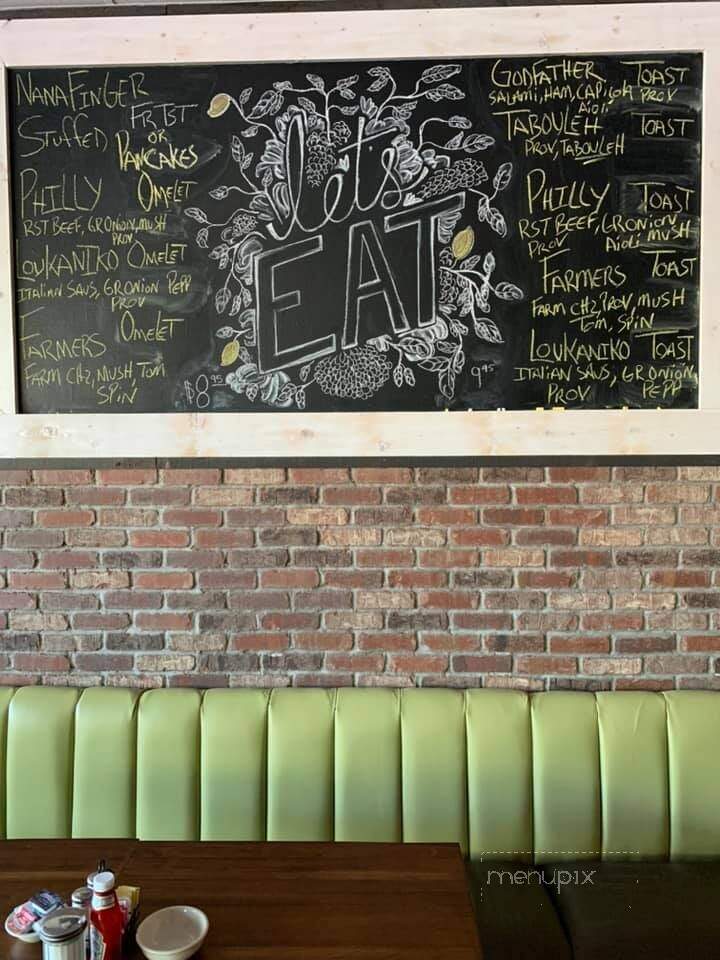 NANAFINGER
FR TST
STUFFED
OR
PANCAKES
PHILLY OMELET
RST BEEF, GRONION, MUSH
PROV
LOUKANIKO OMELET
ITALIAN SAUS, GRONION PEPP
PROV
FARMERS OMELET
FARM CHZ, MUSH, TOM
SPIN
$8.95
let's
EAT
GODFATHER TOAST
SALAMI, HAM, CAPICOLA PROV
AIOLI
TABOULEH TOAST
PROV, TABOULEH
PHILLY TOAST
RST BEEF, GRONION,
PROV AIOLI MUSH
FARMERS TOAST
FARM CHZ, PROV, MUSH
TOM, SPIN
LOUKANIKO TOAST
ITALIAN SAUS, GRONION,
PROV PEPP
9.95
menupix